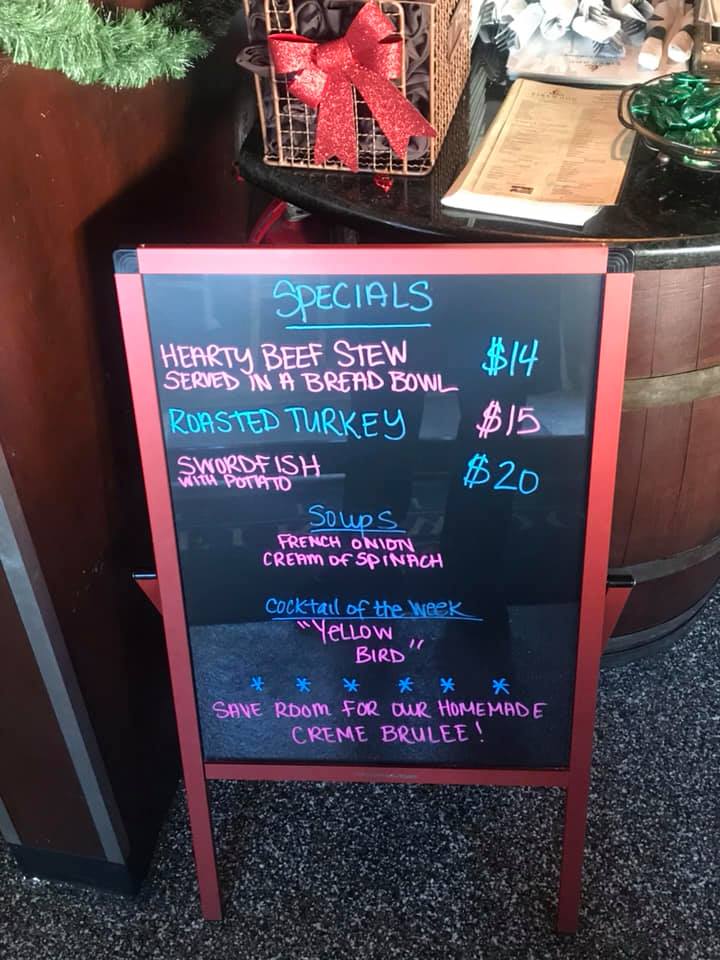 SPECIALS
HEARTY BEEF STEW $14
SERVED IN A BREAD BOWL
ROASTED TURKEY $15
SWORDFISH $20
WITH POTATO
SOUPS
FRENCH ONION
CREAM OF SPINACH
Cocktail of the Week
"YELLOW
BIRD"
* * * * * *
SAVE ROOM FOR OUR HOMEMADE
CREME BRULEE!